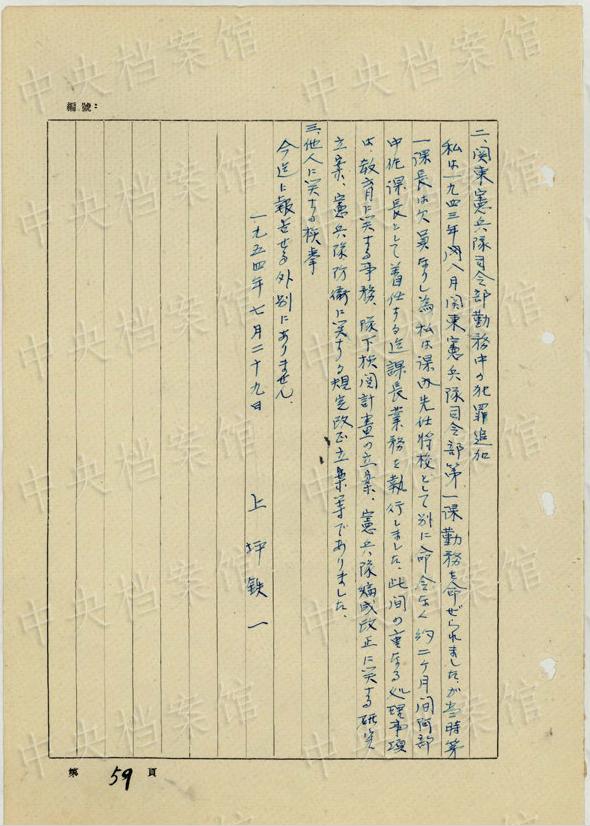 編號:
二、関東憲兵隊司令部勤務中の犯罪追加
私は一九四三年八月関東憲兵隊司令部第一課勤務を命ぜられましたが当時第
一課長は欠員なりし為私は課内先任将校として別に命令なく約二ケ月間阿部
中佐課長として着任する迄課長業務を執行しました、此间の重なる処理事項
は、教育に関する事務、隊下検閲計畫の立案、憲兵隊編成改正に関する研究
立案、憲兵隊防衛に関する規定改正立案等でありました、
三、他人に関する検挙
今迄に報告せる外別にありません、
一九五四年七月二十九日
上坪鉄一
第 59 頁
中央档案馆